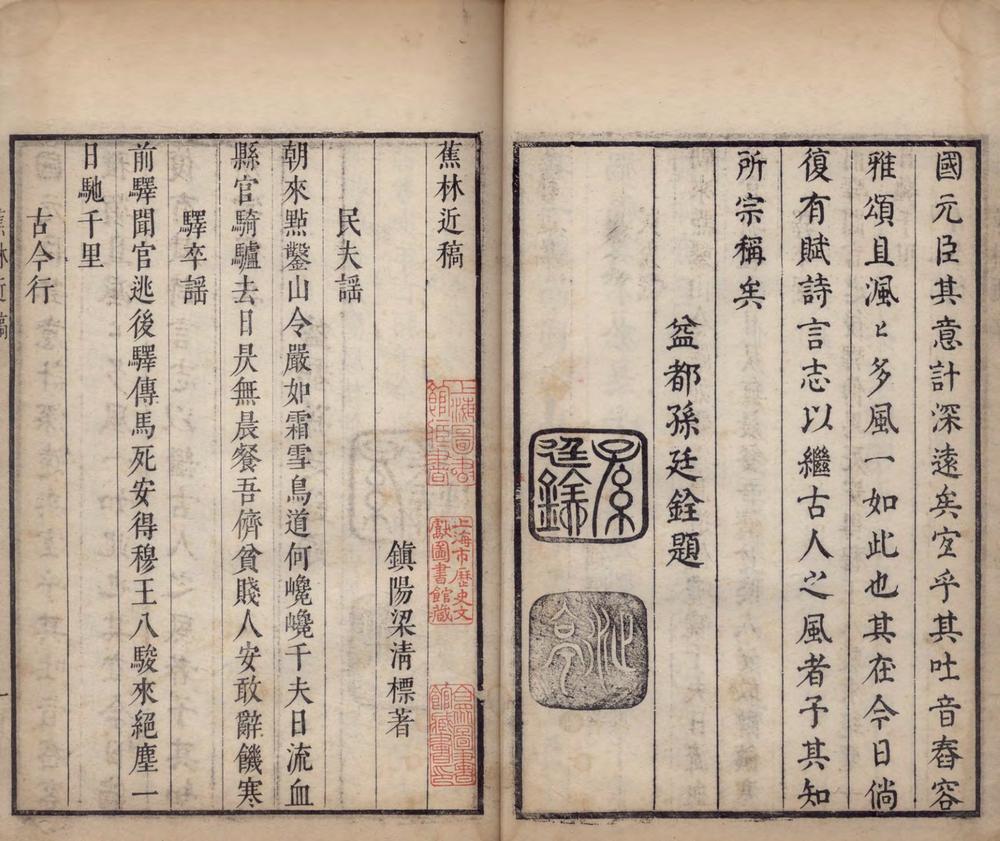 國元臣其意計深遠矣宜乎其吐音舂容
雅頌且渢〻多風一如此也其在今日倘
復有賦詩言志以繼古人之風者予其知
所宗稱矣
益都孫廷銓題
孫廷銓
沚亭
蕉林近稿
上海圖書館藏書
上海市歷史文獻圖書館藏
合眾圖書館藏書印
鎮陽梁清標著
民夫謡
朝來點鑿山令嚴如霜雪鳥道何巉巉千夫日流血
縣官騎驢去日昃無晨餐吾儕貧賤人安敢辭饑寒
驛卒謡
前驛聞官逃後驛傳馬死安得穆王八駿來絕塵一
日馳千里
古今行
蕉林近稿
一